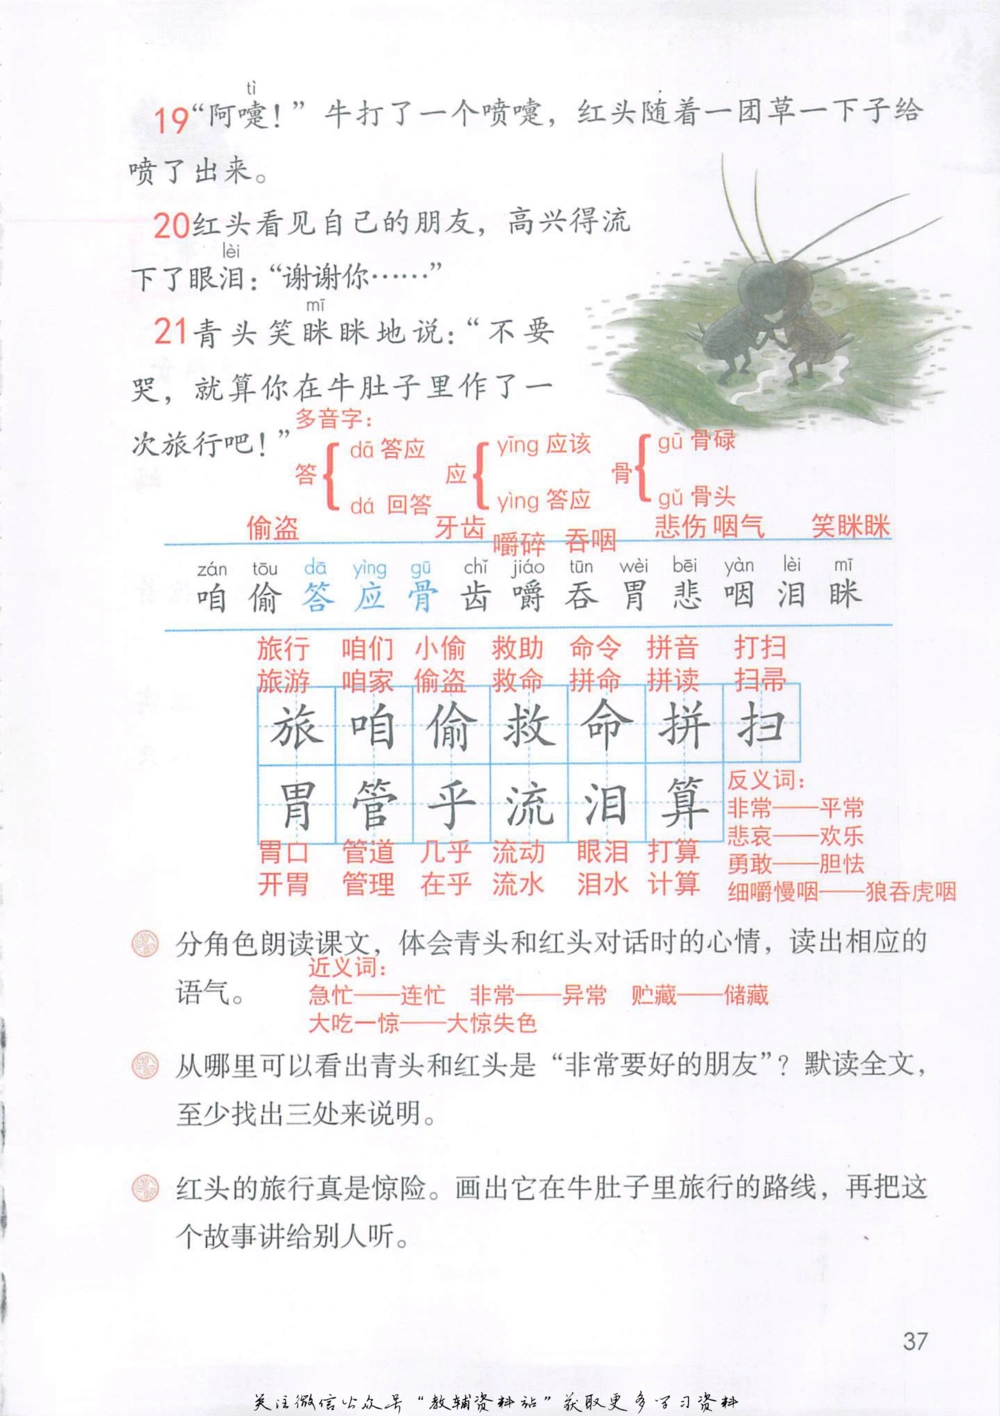 tì
19“阿嚏！”牛打了一个喷嚏，红头随着一团草一下子给
喷了出来。
20红头看见自己的朋友，高兴得流
lèi
下了眼泪：“谢谢你……”
mī
21青头笑眯眯地说：“不要
哭，就算你在牛肚子里作了一
次旅行吧！”
多音字：
答{ dā 答应 dá 回答
应{ yīng 应该 yìng 答应
骨{ gū 骨碌 gǔ 骨头
偷盗 牙齿 嚼碎 吞咽 悲伤 咽气 笑眯眯
zán tōu dā yìng gū chǐ jiáo tūn wèi bēi yàn lèi mī
咱 偷 答 应 骨 齿 嚼 吞 胃 悲 咽 泪 眯
旅行 咱们 小偷 救助 命令 拼音 打扫
旅游 咱家 偷盗 救命 拼命 拼读 扫帚
旅 咱 偷 救 命 拼 扫
胃 管 乎 流 泪 算
胃口 管道 几乎 流动 眼泪 打算
开胃 管理 在乎 流水 泪水 计算
反义词：
非常——平常
悲哀——欢乐
勇敢——胆怯
细嚼慢咽——狼吞虎咽
分角色朗读课文，体会青头和红头对话时的心情，读出相应的
语气。
近义词：
急忙——连忙 非常——异常 贮藏——储藏
大吃一惊——大惊失色
从哪里可以看出青头和红头是“非常要好的朋友”？默读全文，
至少找出三处来说明。
红头的旅行真是惊险。画出它在牛肚子里旅行的路线，再把这
个故事讲给别人听。
37
关注微信公众号“教辅资料站”获取更多学习资料